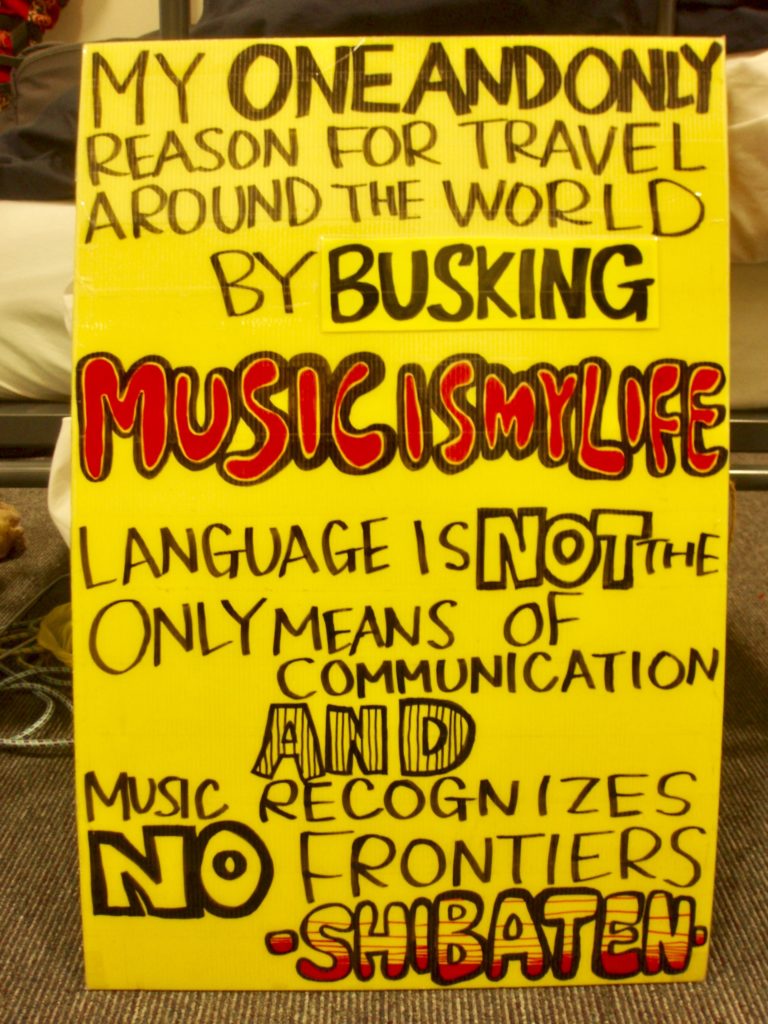 MY ONE AND ONLY
REASON FOR TRAVEL
AROUND THE WORLD
BY BUSKING
MUSIC IS MY LIFE
LANGUAGE IS NOT THE
ONLY MEANS OF
COMMUNICATION
AND
MUSIC RECOGNIZES
NO FRONTIERS
-SHIBATEN-